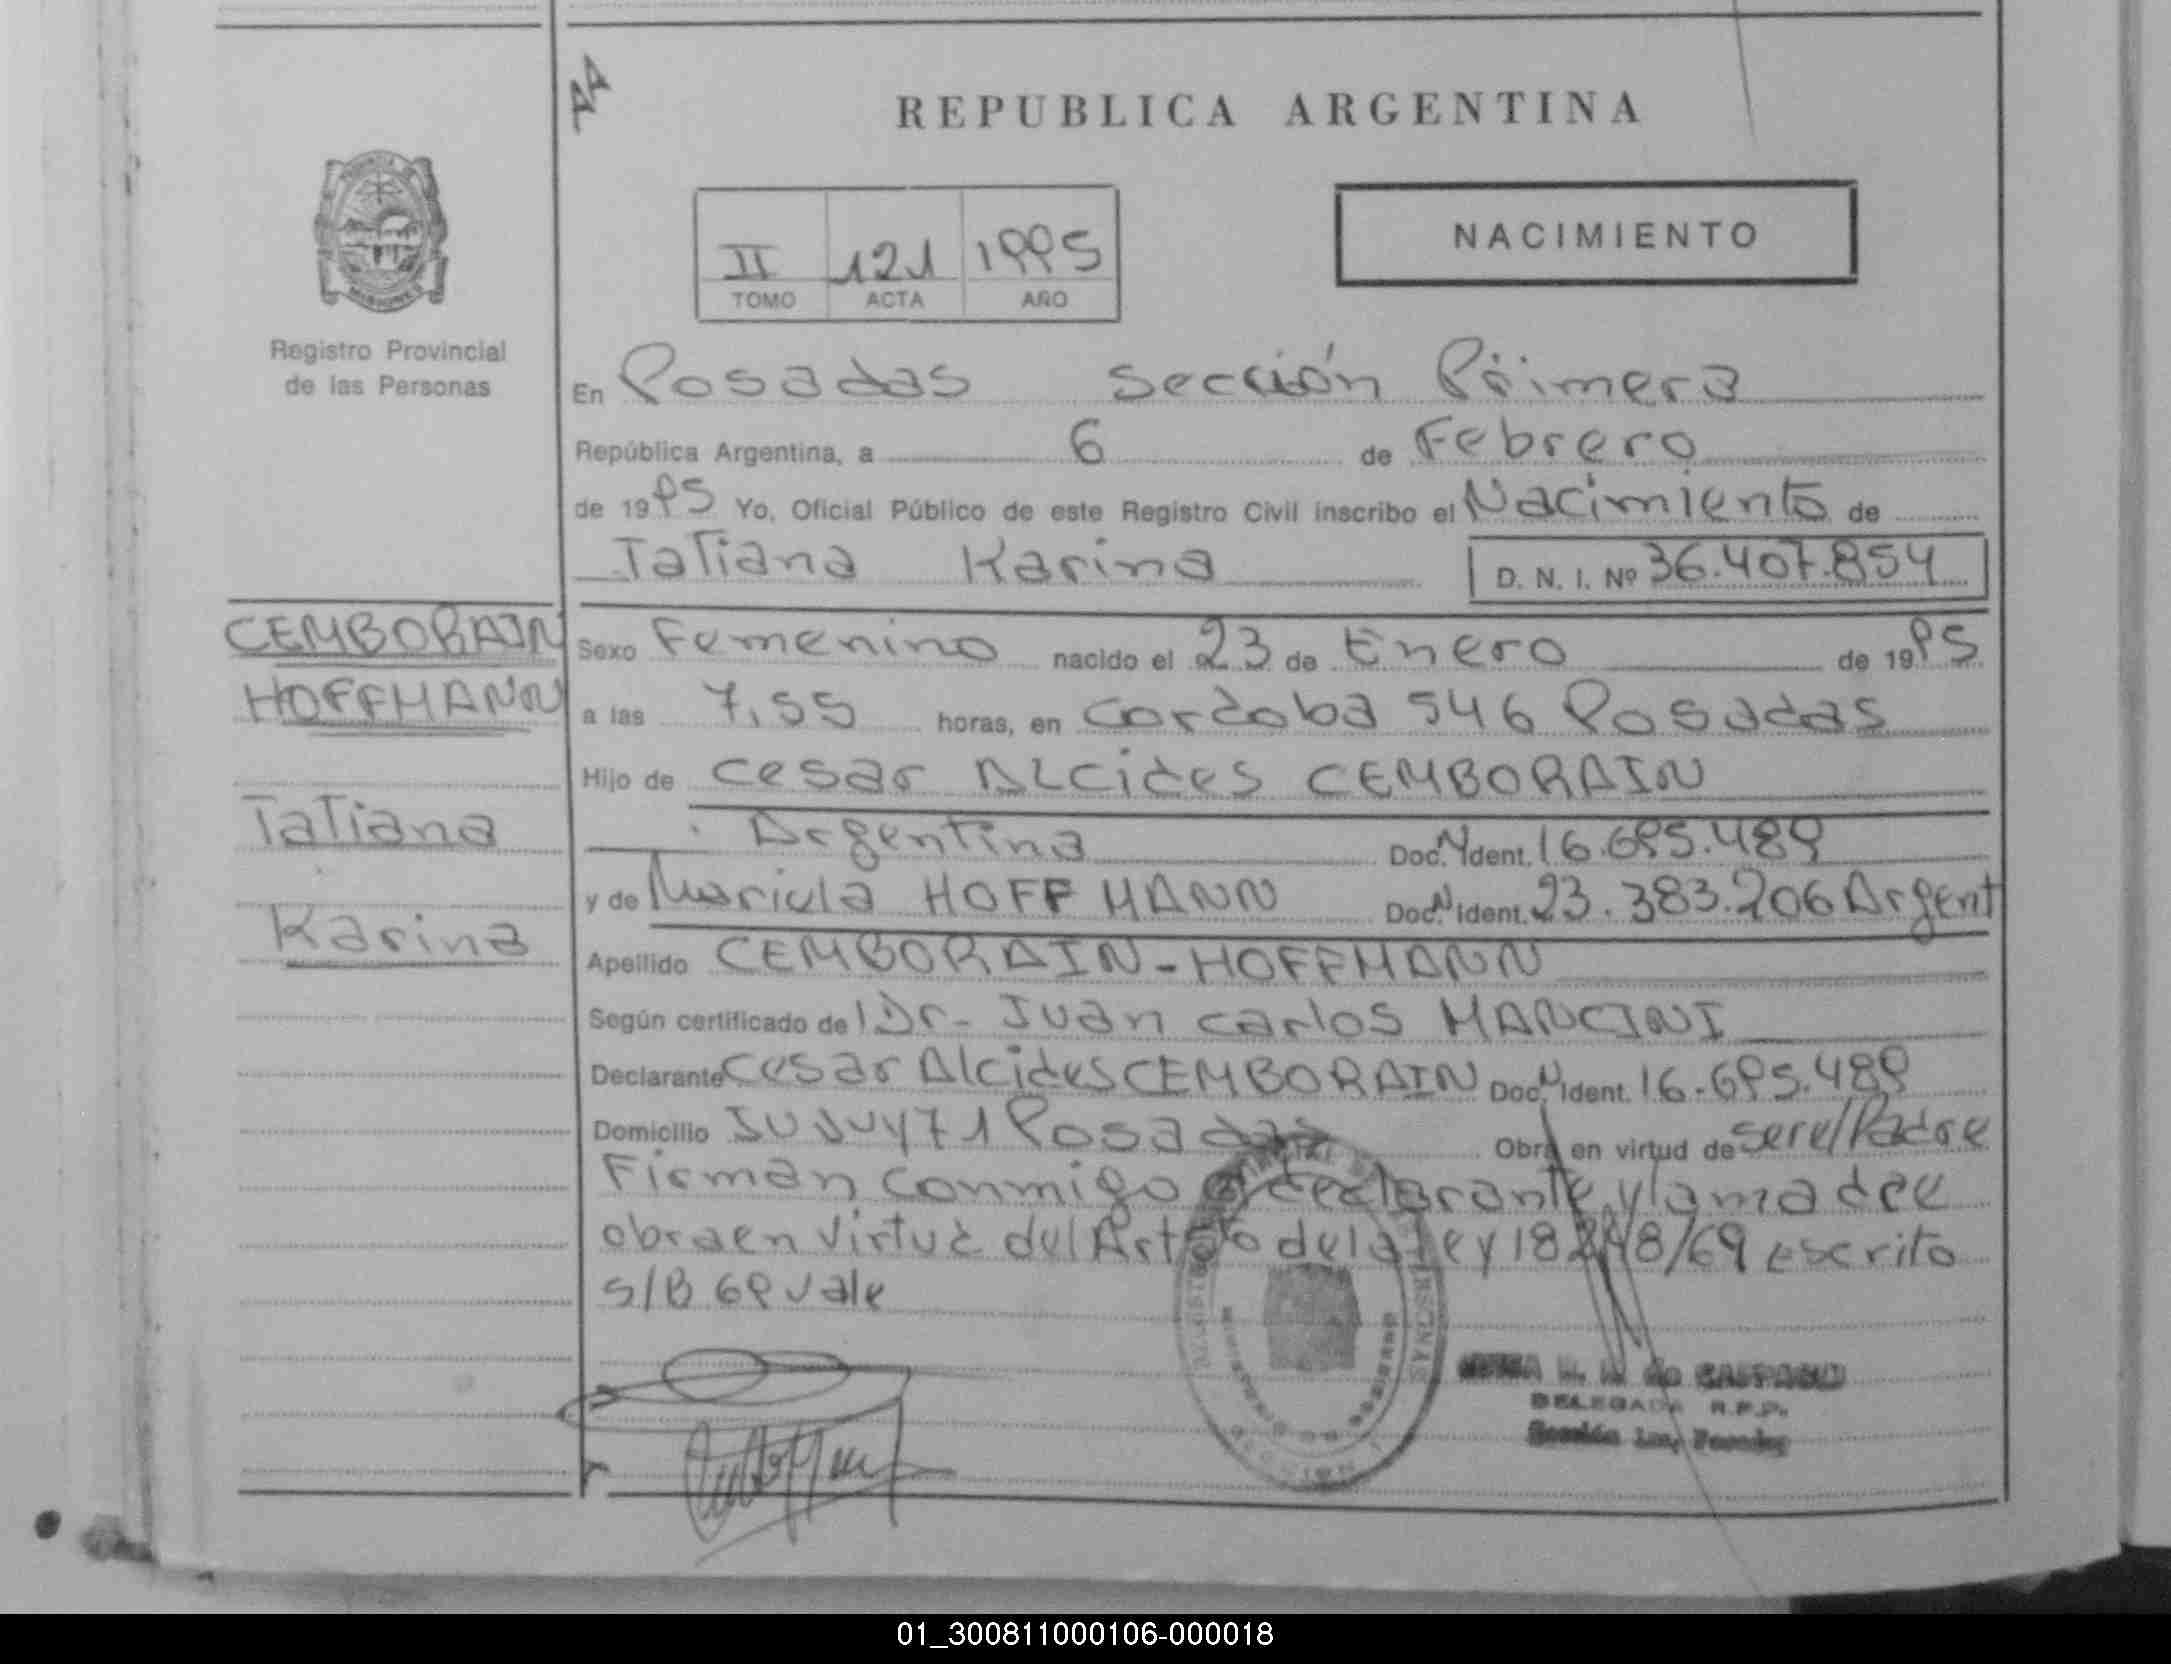 REPUBLICA ARGENTINA
II 121 1995
TOMO ACTA AÑO
NACIMIENTO
MISIONES
Registro Provincial
de las Personas
En Posadas Sección Primera
República Argentina, a 6 de Febrero
de 1995 Yo, Oficial Público de este Registro Civil inscribo el Nacimiento de
Tatiana Karina D. N. I. Nº 36.407.854
CEMBORAIN
HOFFMANN
Tatiana
Karina
Sexo Femenino nacido el 23 de Enero de 1995
a las 7,55 horas, en Cordoba 546 Posadas
Hijo de Cesar Alcides CEMBORAIN
Argentina Doc. N Ident. 16.695.489
y de Mariela HOFFMANN Doc. N Ident. 23.383.206 Argent
Apellido CEMBORAIN-HOFFMANN
Según certificado de Dr- Juan Carlos MANCINI
Declarante Cesar Alcides CEMBORAIN Doc. N Ident. 16.695.489
Domicilio JUJUY 71 Posadas Obra en virtud de ser el Padre
Firman conmigo el declarante y la madre
obra en virtud del Art de la ley 18248/69 escrito
s/B 69 vale
DELEGADA R.P.P.
01_300811000106-000018